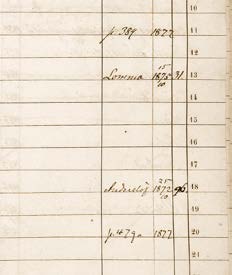 10
p. 389 1877 11
12
Lomma 15/10 1875 31. 13
14
15
16
17
Anderslöf 25/10 1872 96. 18
19
p. 479a 1877 20
21